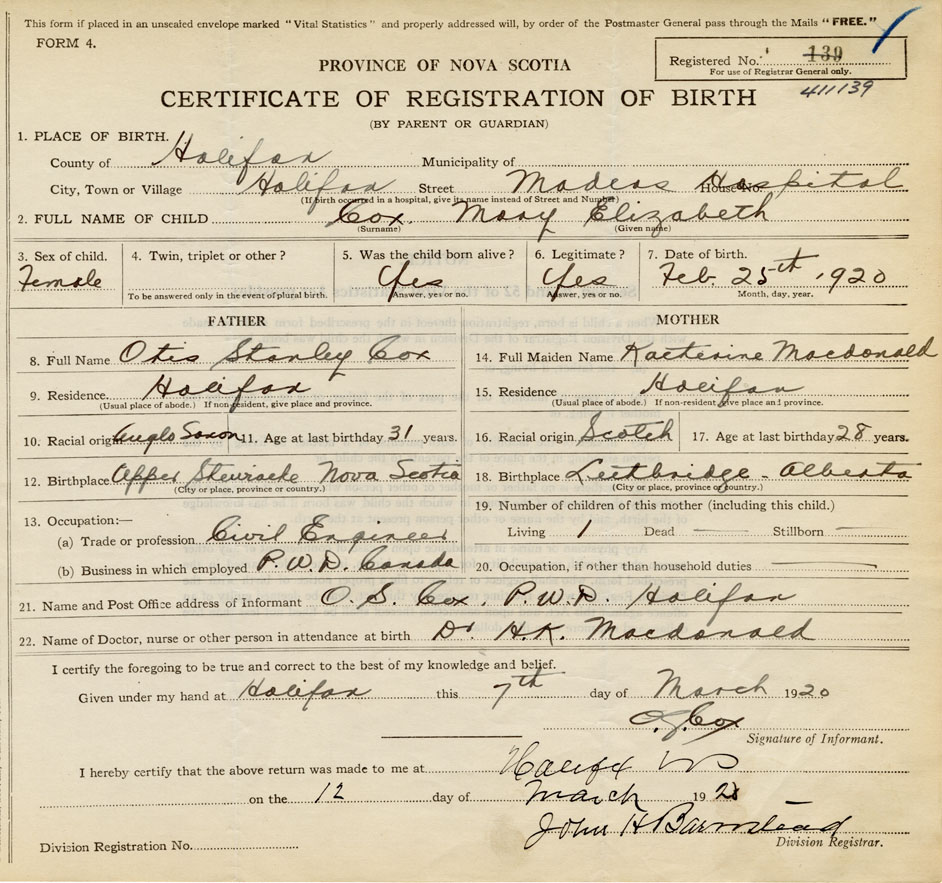 This form if placed in an unsealed envelope marked "Vital Statistics" and properly addressed will, by order of the Postmaster General pass through the Mails "FREE."
FORM 4.
Registered No. 139
For use of Registrar General only.
411139
PROVINCE OF NOVA SCOTIA
CERTIFICATE OF REGISTRATION OF BIRTH
(BY PARENT OR GUARDIAN)
1. PLACE OF BIRTH.
County of Halifax Municipality of
City, Town or Village Halifax Street House No. Hospital
(If birth occurred in a hospital, give its name instead of Street and Number)
2. FULL NAME OF CHILD Cox. Mary Elizabeth
(Surname) (Given name)
3. Sex of child. 4. Twin, triplet or other? 5. Was the child born alive? 6. Legitimate? 7. Date of birth.
Female Yes Yes Feb. 25th, 1920
To be answered only in the event of plural birth. Answer, yes or no. Answer, yes or no. Month, day, year.
FATHER MOTHER
8. Full Name Otis Stanley Cox 14. Full Maiden Name Katherine Macdonald
9. Residence. Halifax 15. Residence Halifax
(Usual place of abode.) If non-resident, give place and province. (Usual place of abode.) If non-resident, give place and province.
10. Racial origin Anglo Saxon 11. Age at last birthday 31 years. 16. Racial origin Scotch 17. Age at last birthday 28 years.
12. Birthplace Upper Stewiacke Nova Scotia 18. Birthplace Lethbridge - Alberta
(City or place, province or country.) (City or place, province or country.)
13. Occupation:— 19. Number of children of this mother (including this child.)
(a) Trade or profession Civil Engineer Living 1 Dead — Stillborn —
(b) Business in which employed P.W.D. Canada 20. Occupation, if other than household duties —
21. Name and Post Office address of Informant O. S. Cox, P.W.D. Halifax
22. Name of Doctor, nurse or other person in attendance at birth Dr H.K. Macdonald
I certify the foregoing to be true and correct to the best of my knowledge and belief.
Given under my hand at Halifax this 7th day of March 1920
O.S. Cox
Signature of Informant.
I hereby certify that the above return was made to me at Halifax NS
on the 12 day of March 192
John H Barnstead
Division Registrar.
Division Registration No.